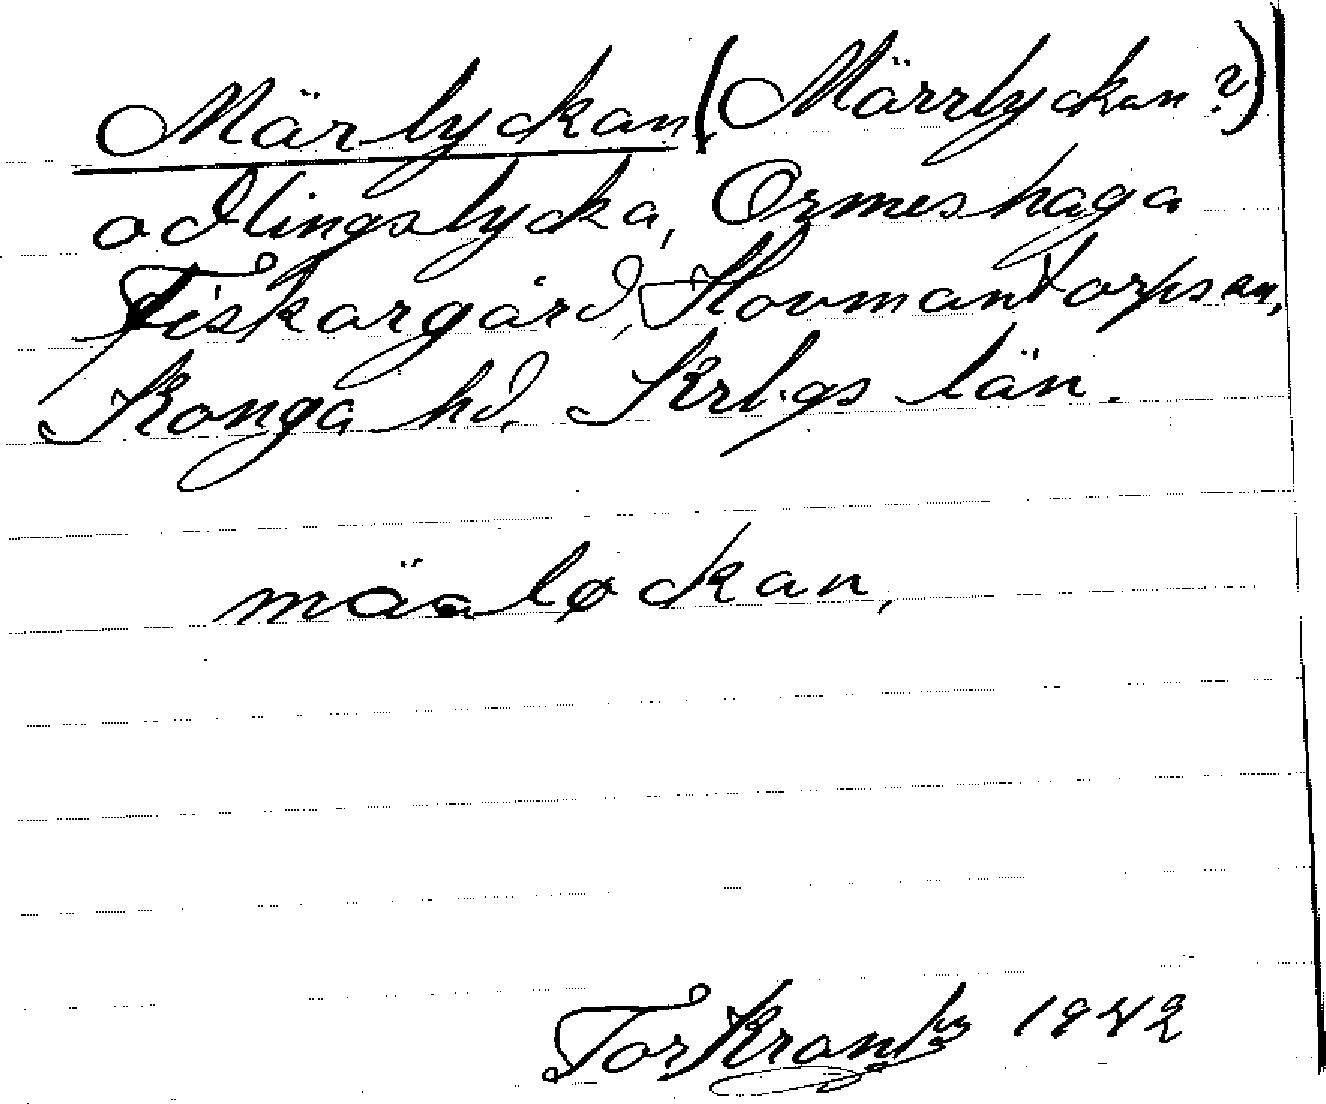 Märlyckan (Märrlyckan?)
odlingslycka, Ormeshaga
Fiskargård, Hovmantorps sn,
Konga hd. Krbgs län.
mäaløckan,
Tor Krantz 1942